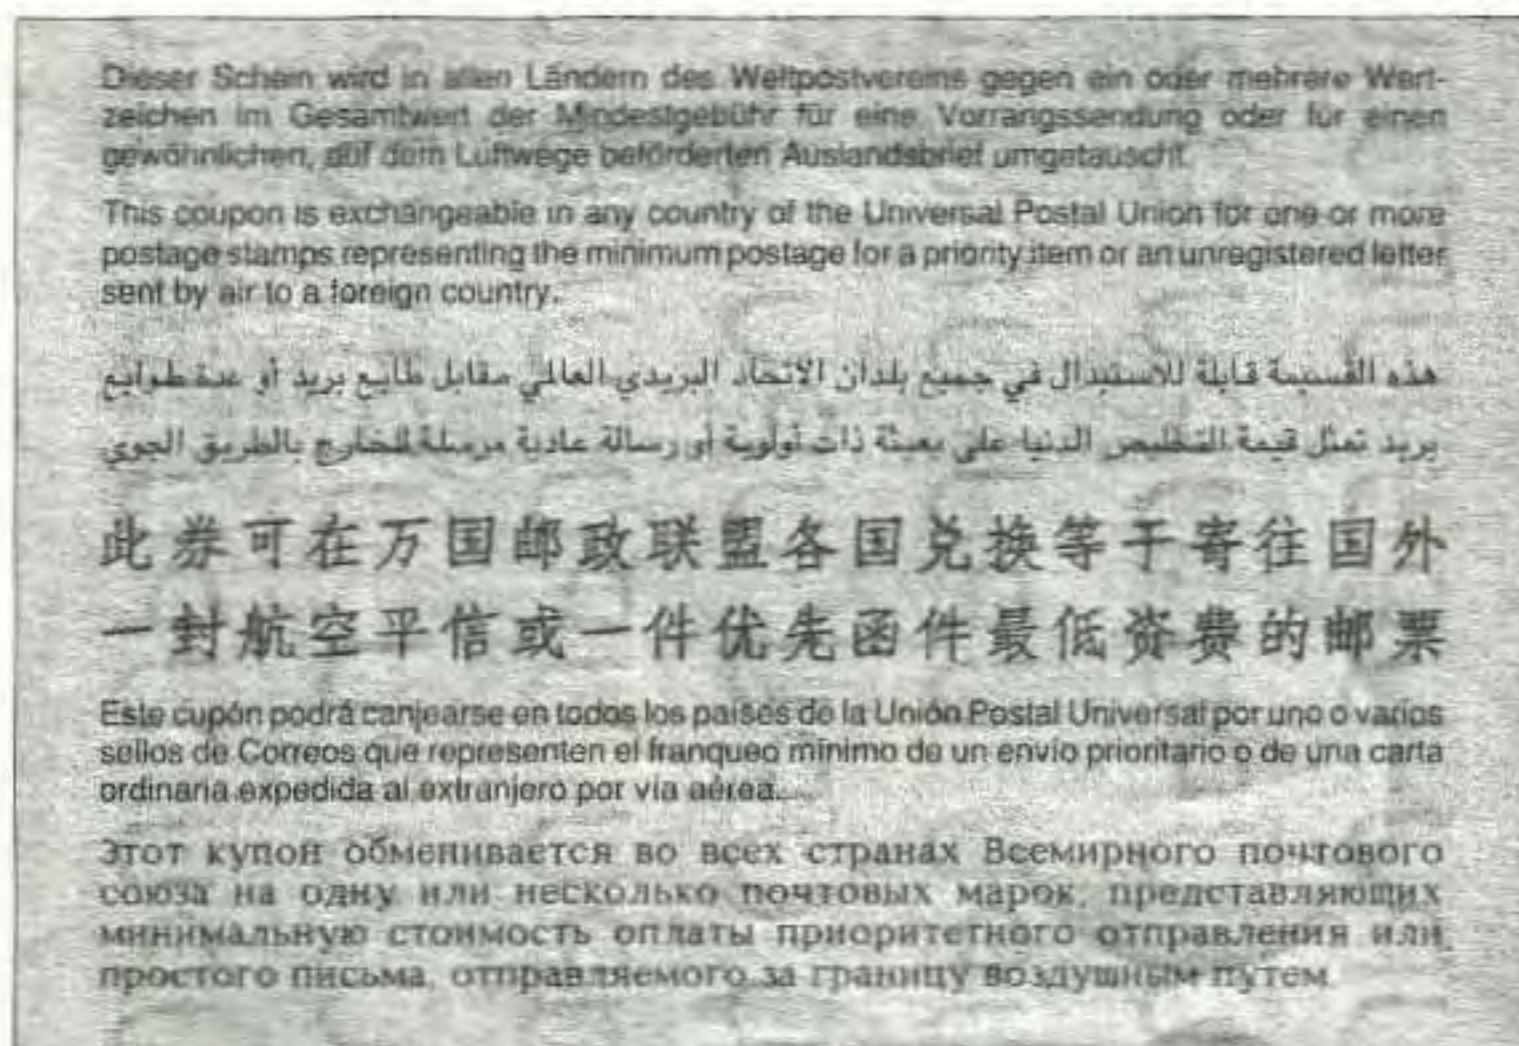 Dieser Schein wird in allen Ländern des Weltpostvereins gegen ein oder mehrere Wert-
zeichen im Gesamtwert der Mindestgebühr für eine Vorrangssendung oder für einen
gewöhnlichen, auf dem Luftwege beförderten Auslandsbrief umgetauscht.
This coupon is exchangeable in any country of the Universal Postal Union for one or more
postage stamps representing the minimum postage for a priority item or an unregistered letter
sent by air to a foreign country.
هذه القسيمة قابلة للاستبدال في جميع بلدان الاتحاد البريدي العالمي مقابل طابع بريد أو عدة طوابع
بريد تمثل قيمة التخليص الدنيا على بعيثة ذات أولوية أو رسالة عادية مرسلة للخارج بالطريق الجوي
此券可在万国邮政联盟各国兑换等于寄往国外
一封航空平信或一件优先函件最低资费的邮票
Este cupón podrá canjearse en todos los países de la Unión Postal Universal por uno o varios
sellos de Correos que representen el franqueo mínimo de un envío prioritario o de una carta
ordinaria expedida al extranjero por vía aérea.
Этот купон обменивается во всех странах Всемирного почтового
союза на одну или несколько почтовых марок, представляющих
минимальную стоимость оплаты приоритетного отправления или
простого письма, отправляемого за границу воздушным путем.